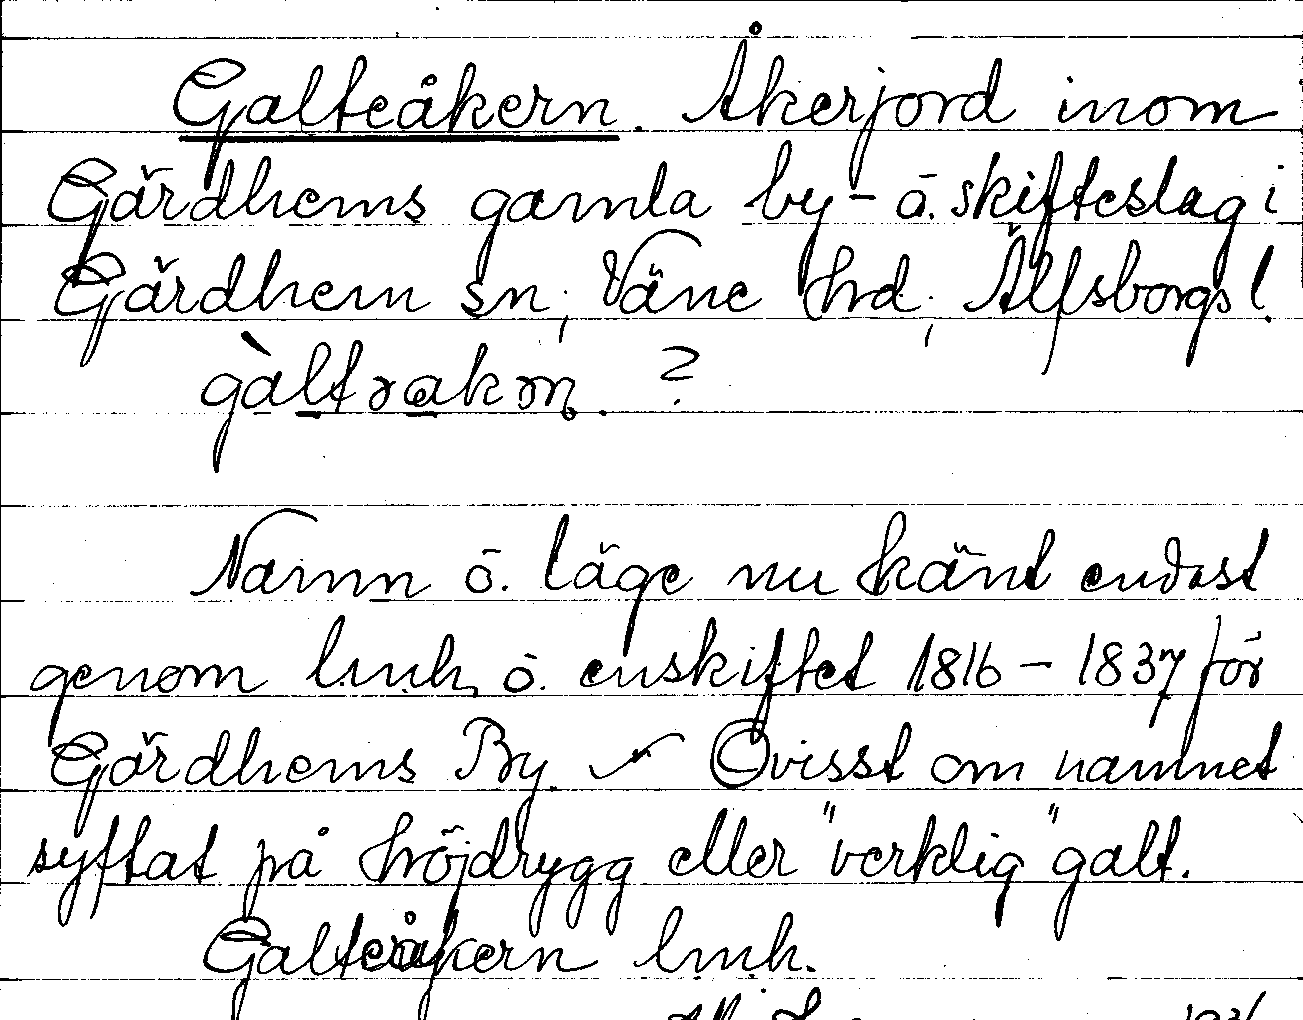 Galteåkern. Åkerjord inom
Gärdhems gamla by- o. skifteslag i
Gärdhem sn, Väne hrd, Älfsborgs l.
gàltɂakɂn. ?
Namn o. läge nu känt endast
genom lmh. o. enskiftet 1816 - 1837 för
Gärdhems By. Ovisst om namnet
syftat på höjdrygg eller "verklig" galt.
Galteåkern lmh.